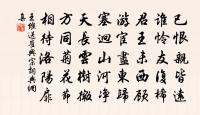 已恨親皆遠
誰憐友復稀
君王未西顧
遊宦盡東歸
塞迥山河淨
天長雲樹微
方同菊花節
相待洛陽扉
王維送崔興宗詞典網